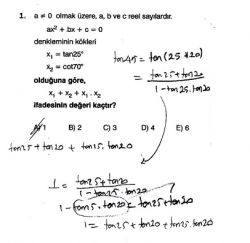 1. a ≠ 0 olmak üzere, a, b ve c reel sayılardır.
ax² + bx + c = 0
denkleminin kökleri
x₁ = tan25°
x₂ = cot70°
olduğuna göre,
x₁ + x₂ + x₁ . x₂
ifadesinin değeri kaçtır?
A) 1 B) 2 C) 3 D) 4 E) 6
tan45 = tan(25+20)
= tan25+tan20
1-tan25.tan20
tan25 + tan20 + tan25.tan20
1 = tan25+tan20
1-tan25.tan20
1-tan25.tan20 = tan25+tan20
1 = tan25 + tan20 + tan25.tan20